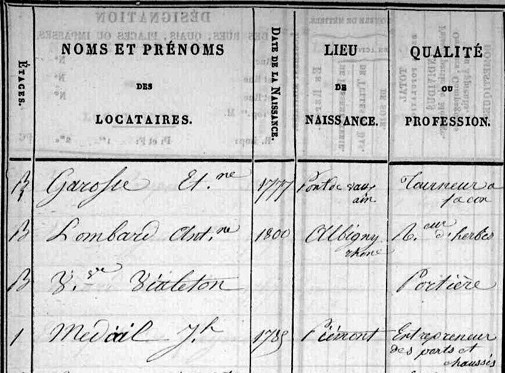 ÉTAGES.
NOMS ET PRÉNOMS
DES
LOCATAIRES.
DATE DE LA NAISSANCE.
LIEU
DE
NAISSANCE.
QUALITÉ
OU
PROFESSION.
B Et.ne 1777 Pont de vaux Tourneur a
ain facon
B Lombard Ant.ne 1800 Albigny d'herbes
rhône
B V.ve Vialeton Portière
1 Medail J.h 1785 Piémont Entrepreneur
des ponts et
chaussés